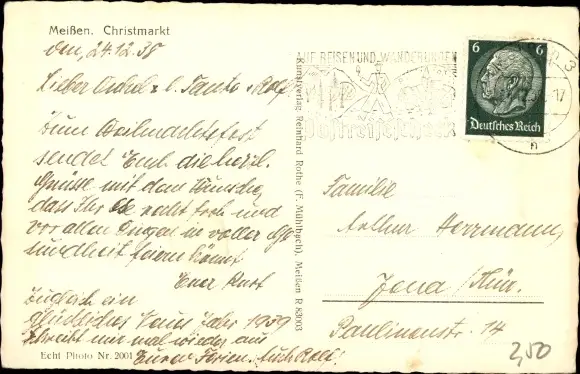 Meißen. Christmarkt
den, 24.12.38
Lieber Onkel u. l. Tante u. Rolf
Zum Weihnachtsfest
sendet Euch die herzl.
Grüße mit dem Wunsche,
dass Ihr es recht froh und
vor allen Dingen in voller Ge-
sundheit feiern könnt
Euer Kurt
Zugleich ein
glückliches Neues Jahr 1939
schreibt mir mal wieder aus
Euren Ferien. Auch Rolf!
Echt Photo Nr. 2001
Kunstverlag Reinhard Rothe (F. Mühlbach), Meißen R 83003
AUF REISEN UND WANDERUNGEN
Postreisescheck
6 6
Deutsches Reich
17
n
Familie
Arthur Herrmann,
Jena/Thür.
Paulinenstr. 14
2,50